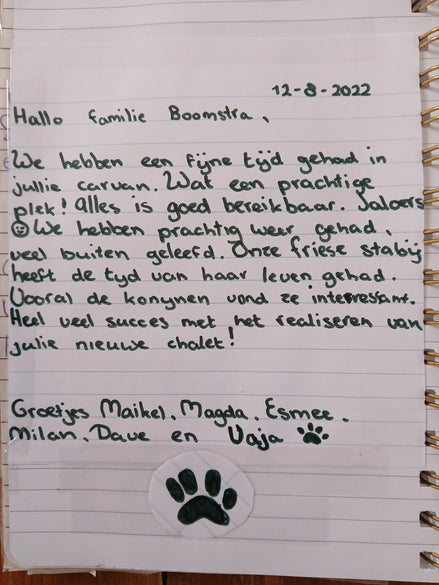 12-8-2022
Hallo familie Boomstra,
We hebben een fijne tijd gehad in
jullie carvan. Wat een prachtige
plek! Alles is goed bereikbaar. Jaloers
☺ We hebben prachtig weer gehad,
veel buiten geleefd. Onze friese stabij
heeft de tyd van haar leven gehad.
Vooral de konynen vond ze interessant.
Heel veel succes met het realiseren van
julie nieuwe chalet!
Groetjes Maikel, Magda, Esmee,
Milan, Dave en Vaja